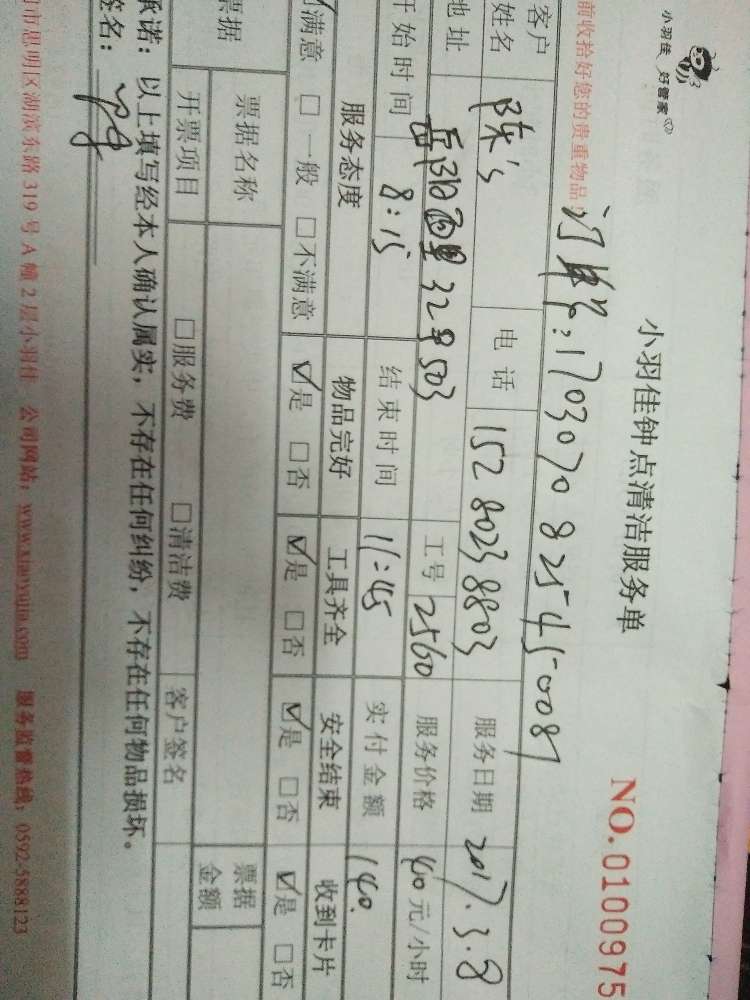 小羽佳 好管家
小羽佳钟点清洁服务单
NO.0100975
前收拾好您的贵重物品!
订单号:1703070825450081
客户姓名 陈's 电话 15280238803 服务日期 2017.3.8
地址 岳阳西里32号503 工号 2560 服务价格 40元/小时
开始时间 8:15 结束时间 11:45 实付金额 140.
服务态度 物品完好 工具齐全 安全结束 收到卡片
满意 □一般 □不满意 ☑是 □否 ☑是 □否 ☑是 □否 ☑是 □否
票据 票据名称 票据金额
开票项目 □服务费 □清洁费 客户签名
承诺:以上填写经本人确认属实,不存在任何纠纷,不存在任何物品损坏。
签名:
市思明区湖滨东路319号A幢2层小羽佳 公司网站:www.xiaoyujia.com 服务监督热线:0592-5888123